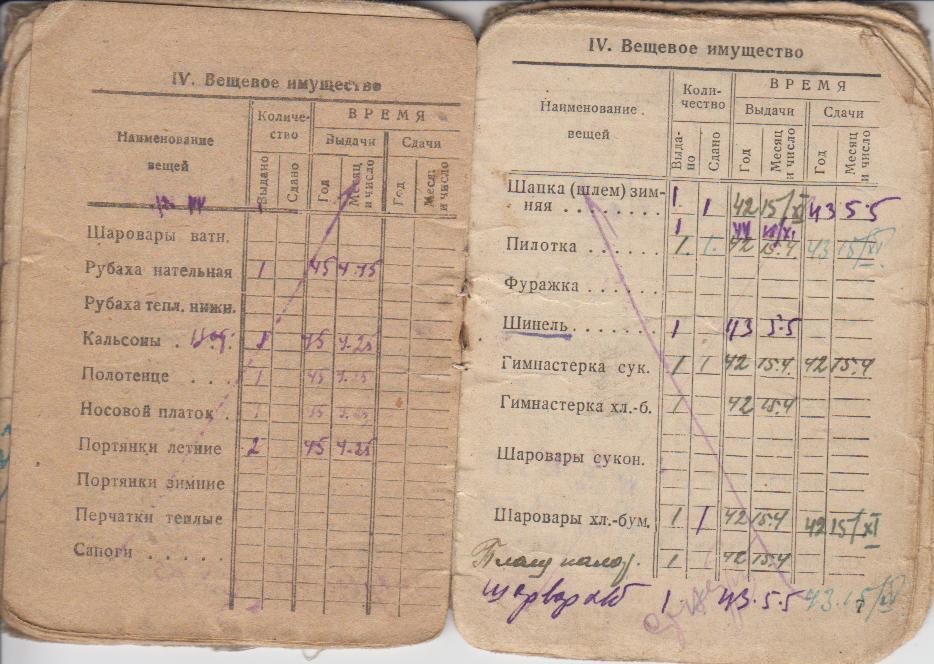 IV. Вещевое имущество
Наименование вещей
Количество
ВРЕМЯ
Выдачи
Сдачи
Выдано
Сдано
Год
Месяц и число
Год
Месяц и число
Шаровары ватн.
Рубаха нательная 1 45 4-25
Рубаха тепл. нижн.
Кальсоны . 45 4-25
Полотенце . . . 1 45 4-25
Носовой платок . 1 45 4-25
Портянки летние 2 45 4-25
Портянки зимние
Перчатки теплые
Сапоги . . . . .
IV. Вещевое имущество
Наименование
вещей
Коли-
чество
ВРЕМЯ
Выдачи
Сдачи
Выда-
но
Сдано
Год
Месяц и число
Год
Месяц и число
Шапка (шлем) зим-
няя . . . . . . . . 1 1 42 15/XI 43 5-5
Пилотка . . . . . . 1 1 42 15.4 43 15/XI
Фуражка . . . . . .
Шинель . . . . . . . 1 43 5-5
Гимнастерка сук. 1 1 42 15.4 42 15.4
Гимнастерка хл.-б. 1 42 15.4
Шаровары сукон.
Шаровары хл.-бум. 1 1 42 15.4 42 15/XI
1 42 15.4
1 1 43.5-5 43.15/XI
7